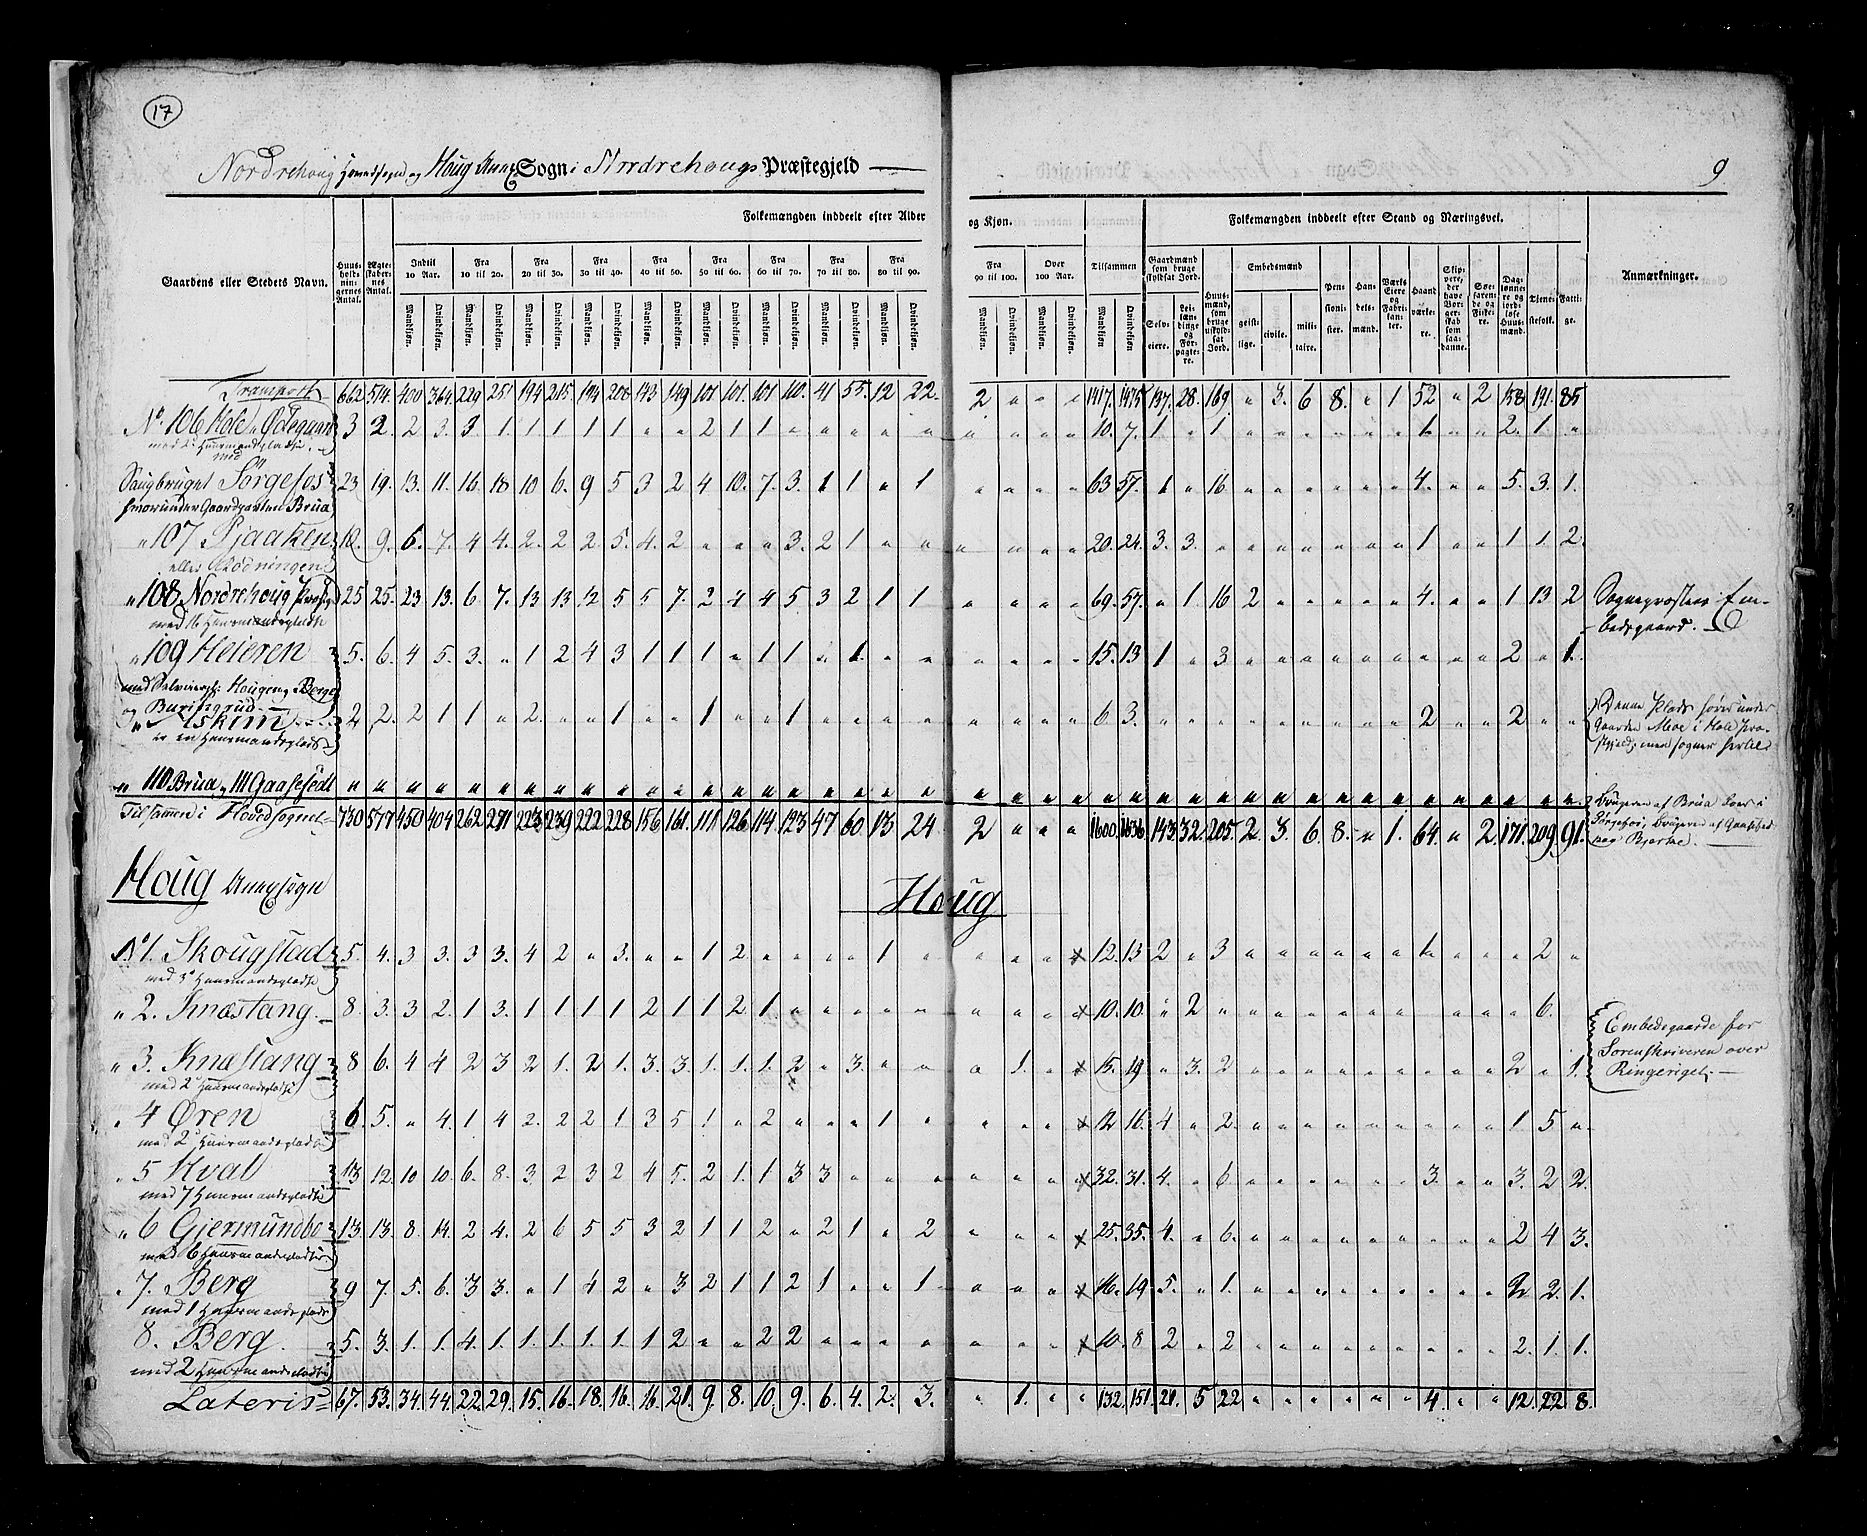 17
Nordrehoug Hovedsogn og Houg Annex Sogn i Nordrehougs Præstegjeld
9
Folkemængden inddeelt efter Alder og Kjøn.
Folkemængden inddeelt efter Stand og Næringsvei.
Gaardens eller Stedets Navn.
Huusholdningernes Antal.
Ægteskabernes Antal.
Indtil 10 Aar.
Fra 10 til 20.
Fra 20 til 30.
Fra 30 til 40.
Fra 40 til 50.
Fra 50 til 60.
Fra 60 til 70.
Fra 70 til 80.
Fra 80 til 90.
Fra 90 til 100.
Over 100 Aar.
Tilsammen
Mandkjøn. Qvindekjøn.
Gaardmænd som bruge skyldsat Jord.
Selveiere.
Leilændinge og Forpagtere.
Huusmænd, som bruge uskyldsat Jord.
Embedsmænd
geistlige.
civile.
militaire.
Pensionister.
Handelsmænd.
Værks Eiere og Fabrikanter.
Haandværkere.
Skippere, der have Borgerskab som saadanne.
Søefarende og Fiskere.
Daglønnere og jordløse Huusmænd.
Tjenestefolk.
Fattige.
Anmærkninger.
Transport 662 514. 400 364. 229 251 194 215 194 208 143 149 101 101. 101 10. 41 55. 12 22. 2 " " " 1417. 1475 137. 28. 169 " 3. 6 8. " 1 52 " 2 158 191. 85
No. 106 Hole Ødegaard 3 2. 2 3. 3. 1. 1 1 1 1 " " 2 1 1 " " " " " " " " " 10. 7. 1 " 1 " " " " " " 1. " " 2. 1. "
med 2 Huusmandspladse.
med
Saugbruget Sørgefos 23 19. 13. 11. 16. 18 10 6. 9 5 3 2 4 10. 7. 3. 1 1 " 1 " " " " 63 57. 1 " 16 " " " " " " 4. " " 5. 3. 1.
hvorunder Gaardparten Brua
" 107 Pjaaken 12. 9. 6. 7. 4 4. 2. 2 2. 5. 4. 2 " " " 3. 2 1 " " " " " " 20. 24. 3. 3. " " " " " " " 1 " " 1 1. 2.
eller Rødningen
" 108 Nordrehoug Præstg. 25 25. 23 13. 6 7. 13 13. 12 5 5 7. 2 4 4 5 3 2 1 1 " " " " 69. 57. " 1. 16 2 " " " " " 4. " " 1 13 2 Sognepræstens Em-
med 16 Huusmandspladse
bedsgaard.
" 109 Heieren 5. 6. 4 5. 3. " 1 2 4 3 1 1 1 " 1 1 " 1. " " " " " " 15. 13 1 " 3 " " " " " " " " " 2 " 1.
med Selveiergd: Hougen, Berget
og Buringrud
" Askim 2 2. 2 1 1 " 2. " " 1 " " 1 " " 1 " " " " " " " " 6 3. " " " " " " " " " 2 " " 2 " " Denne Plads hører under
er en Huusmandsplads
Gaarden Moe i Hole Præ-
stgjeld; men sogner hertil
" 110 Brua, 111 Gaasesedt " " " " " " " " " " " " " " " " " " " " " " " " " " " " " " " " " " " " " " " " " Brugeren af Brua boer i
Tilsammen i Hovedsognet 730 577 450 404 262. 271 223 239 222 228 156 161. 111 126 114 123 47 60. 13 24 2 " " " 1600. 1636 143 32. 205. 2 3. 6 8. " 1. 64. " 2. 171. 209. 91. Sørgefos; Brugeren af Gaasesed
paa Bjerke.
Houg Annexsogn
Houg
No. 1. Skougstad 5. 4. 3 3. 3 3. 4 2 " 3. " " 1 2 " " " " 1 " " " " 12. 13 2 " 3 " " " " " " 1. " " " 2 "
med 3 Huusmandspladse
" 2. Knæstang. 8. 3. 3 2. 1 3. 1 1 1 1 2 1 1 2 1 " " " " " " " " 10. 10. " 2 " " " " " " " " " " " 6.
" 3. Knæstang 8 6. 4 4 2 3 2 1. 2 1. 3. 3. 1. 1. 1. 2 " 3. " " " 1. " 15. 19 " 3. 2 " " " " " " " " " 2 " 1.
med 2 Huusmandspladse
Embedsgaarde for
Sorenskriveren over
Ringeriget.
" 4 Øren 6. 5. " 4. 1 4 2. 2 2 1 3 5 1. " 2 " " " 1 " " " " 12 16. 4 " 2. " " " " " " " " " 1 5 "
med 2 Huusmandspladse
" 5 Hval 13 12. 10 10. 6. 8. 3 2 3 2 4 5. 2 1. 1. 3 3 " " " " " " 32. 31. 4. " 6 " " " " " " 3. " " 3. 2 2.
med 7 Huusmandspladse
" 6 Gjermundbo 13. 13. 8. 14. 2 4. 2 6 5 5 3 2 1 1 2 " 2 1. " 2 " " " 25. 35. 4. " 6. " " " " " " " " " 2 4 3.
med 6 Huusmandspladse
" 7. Berg 9 7. 5. 6. 3 3. " 1 4 2 " 3 2 1 1 2 1 " " 1 " " " 16. 19 5. " 1. " " " " " " " " " 2 2. 1.
med 1 Huusmandsplads
8. Berg. 5. 3. 1. 1. 4. 1. 1. 1. 1. 1. 1 2 " " 2 2. " " " " " " " 10. 8 2 " 2 " " " " " " " " " 2. 1. 1.
med 2 Huusmandspladse
Lateris 67. 53. 34. 44. 22. 29. 15. 16. 18. 16. 16. 21. 9. 8. 10. 9. 6. 4. 2. 3. " 1. " " 132. 151. 21. 5 22 " " " " " " 4. " " 12. 22 8.